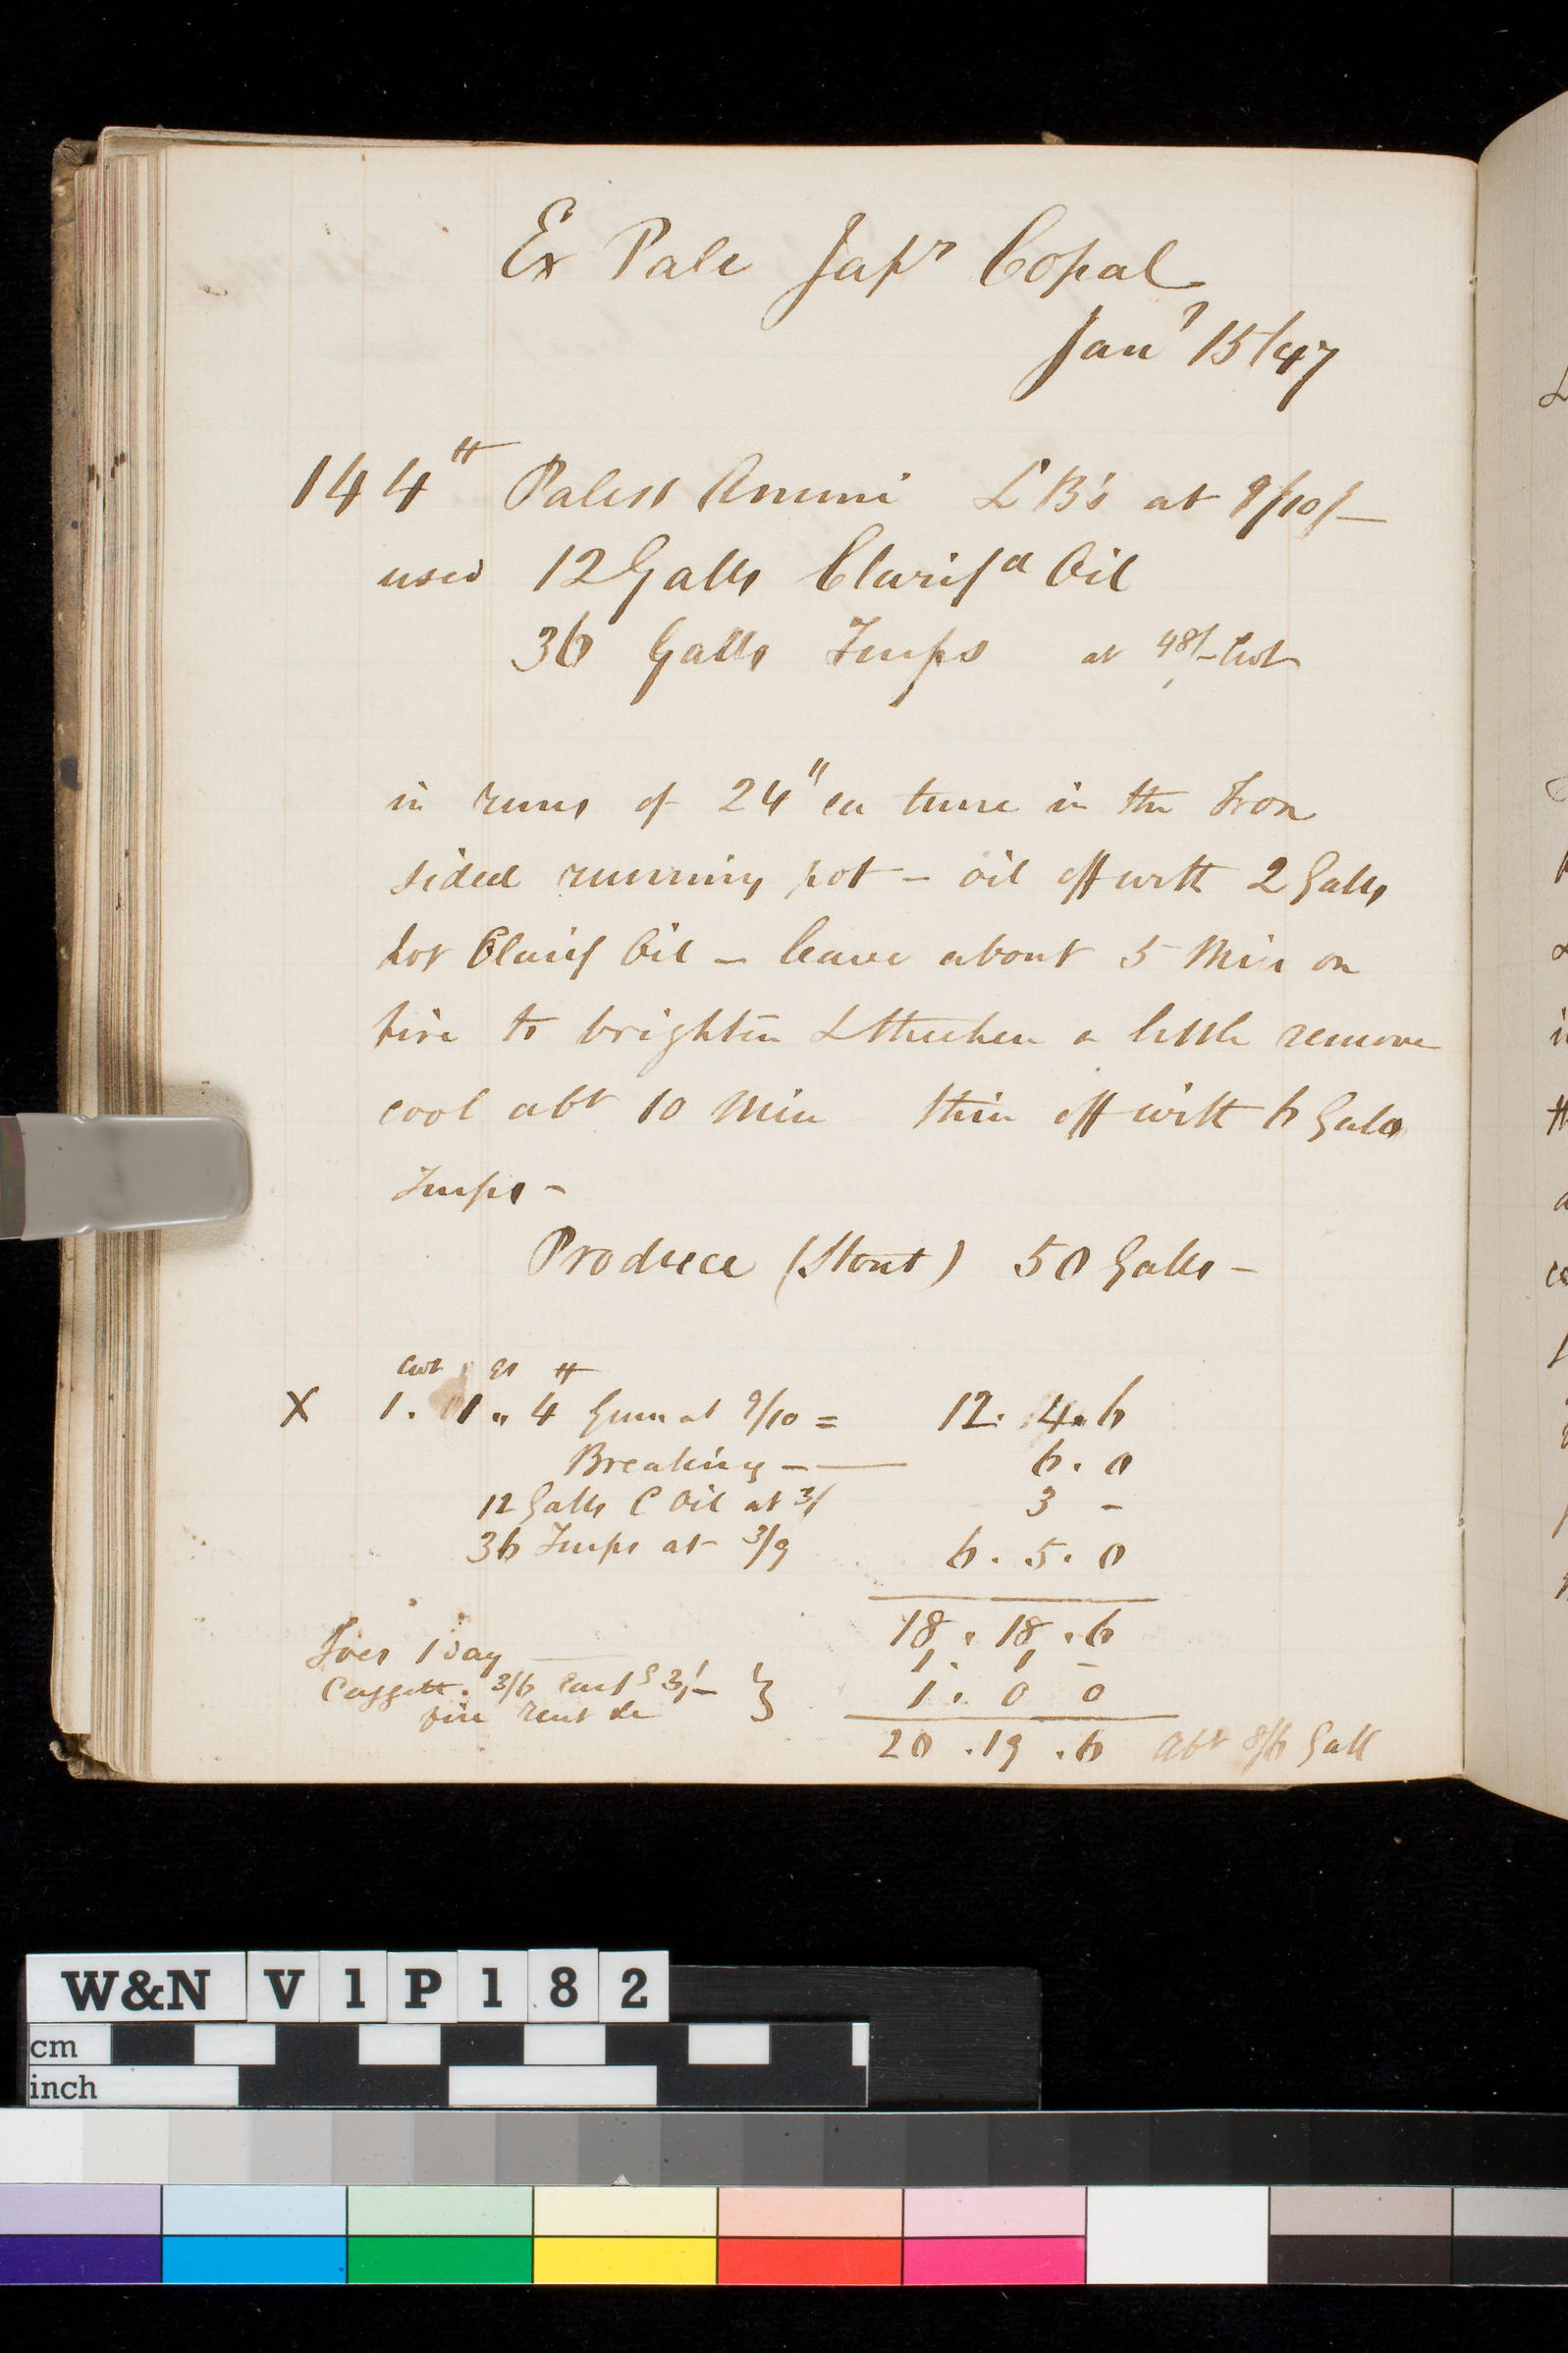 Ex Pale Japr Copal
Jany 15/47
144 tt Palest Ammi LB's at 9/10/-
used 12 Galls Clarifd Oil
36 Galls Turps at 48/- Cwt
in runs of 24" ea time in the Iron
sided running pot - oil off with 2 Galls
hot Clarif Oil - leave about 5 Min on
fire to brighten & thicken a little remove
cool abt 10 Min thin off with 6 Galls
Turps -
Produce (Stout) 50 Galls -
cwt qr tt
X 1. 1 " 4 Gum at 9/10 = 12. 4. 6
Breaking - — 6. 0
12 Galls C Oil at 3/ 3 -
36 Turps at 3/9 6. 5. 0
18. 18. 6
Ives 1 Day — 1. 1 -
3/6 3/-
fire rent &c } 1. 0 0
20. 19. 6 Abt 8/6 Gall
W&N V1P182
cm
inch